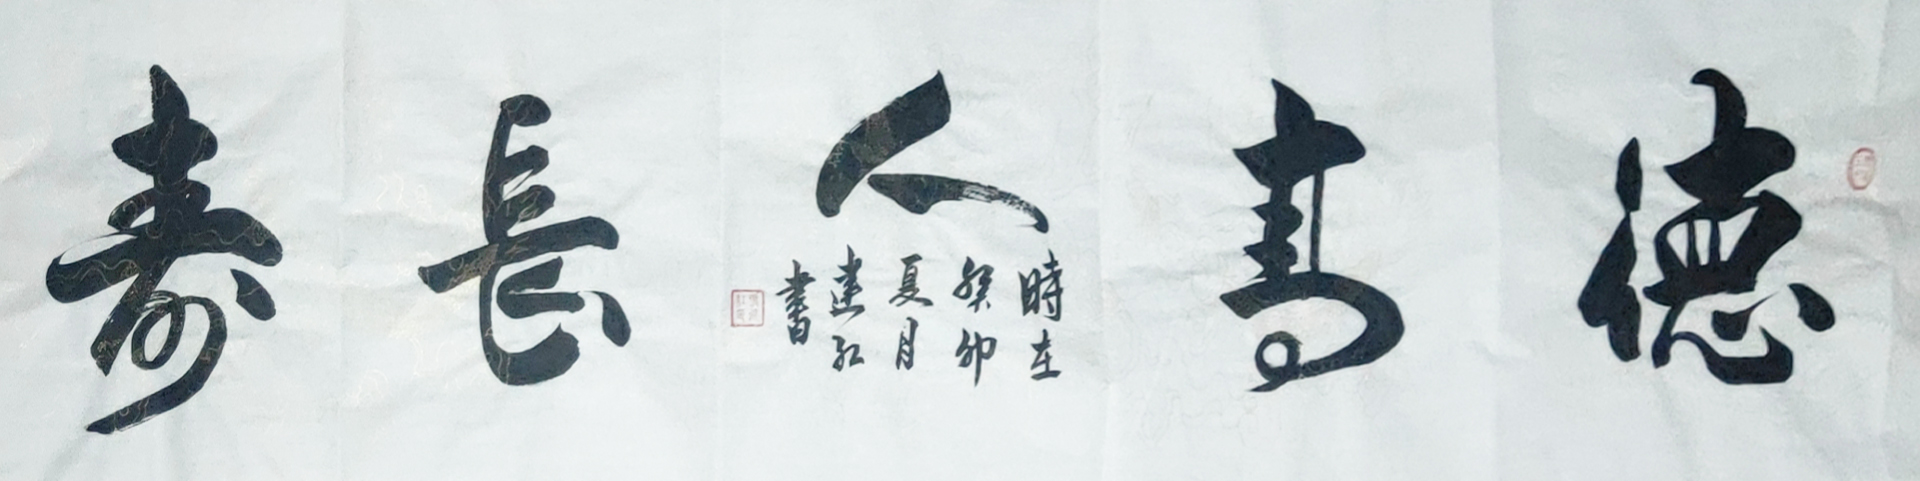 德高人長壽
時在
癸卯
夏月
建紅
書